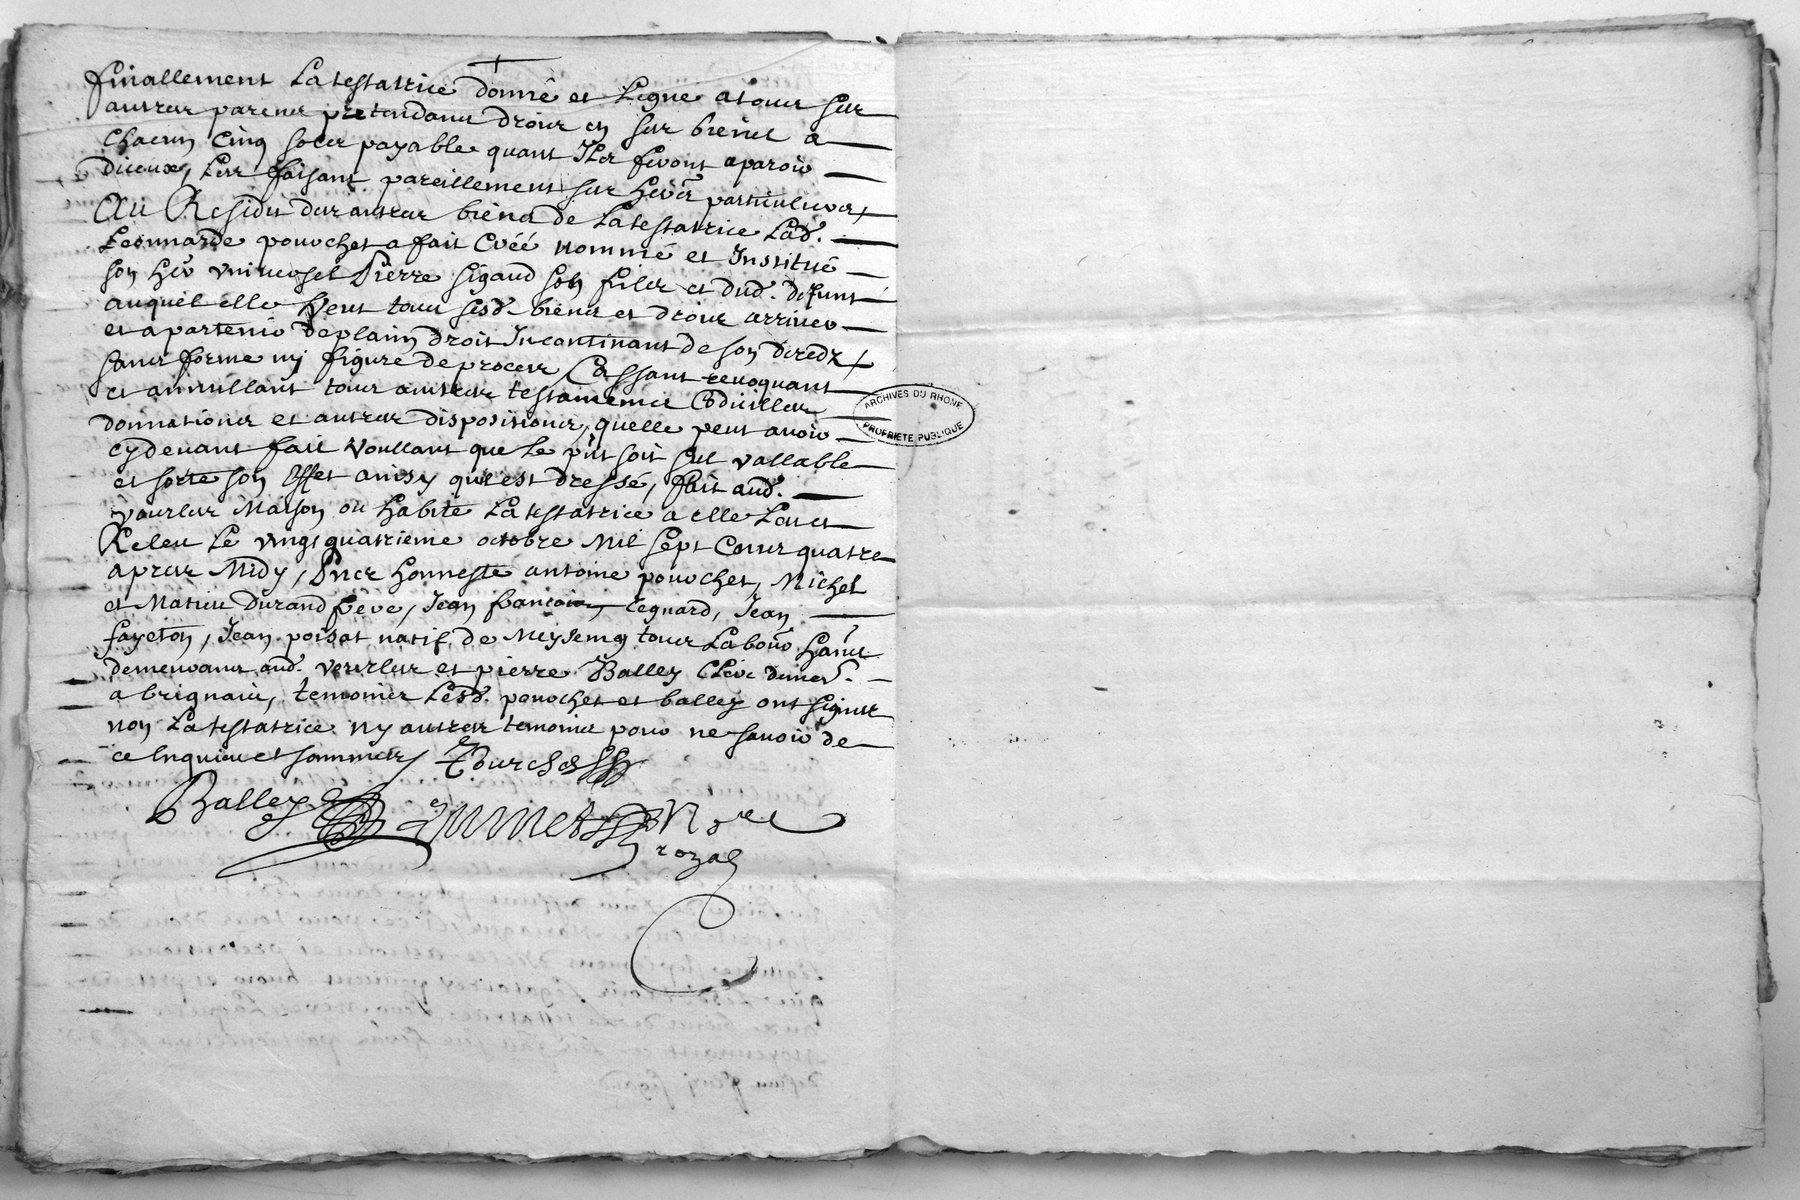 finallement La testatrice donne et Legue a tous ses
autres parens pretendans droits en ses biens a
chacun cinq solz payable quant Ilz feront aparoir
diceux, Les faisant pareillement ses her̃s particuliers
Au Residu des autres biens de La testatrice Lad.
Leonnarde pourchet a fait Créé nommé et Institué
son her̃ universel Pierre sigaud son filz et dud. defunt
auquel elle veut tous sesd. biens et droits arriver
et apartenir de plain droit Incontinant de son decedz
sans forme ny figure de proces Cassant revoquant
et annullant tous autres testamens Codicilles
donnations et autres dispositions, quelle peut avoir
cydevant fait voullant que Le pñt soit sul vallable
et sorte son Effet ainsy quil est dressé, fait aud.
vourles Maison ou habite La testatrice a elle Leu et
Releu Le vingt quatrieme octobre Mil sept Cens quatre
apres Midy, Pñce honneste antoine pourchet, Michel
et Matieu Durand frere, Jean francois, Jean
fayeton, Jean poisat natif de Meyseing tous Labour̃ ha͠ns
demeurans aud. verrles et pierre Balley Clerc demer̃.
a brignais, temoins Lesd. pourchet et balley ont signes
non La testatrice ny autres temoins pour ne savoir de
ce Enquieu et sommes
Pourchet
Balley
Nore
royal
ARCHIVES DU RHONE
PROPRIETE PUBLIQUE